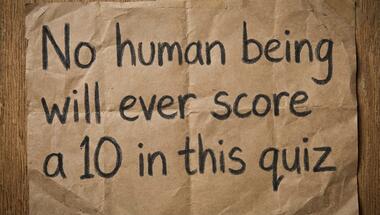 No human being
will ever score
a 10 in this quiz